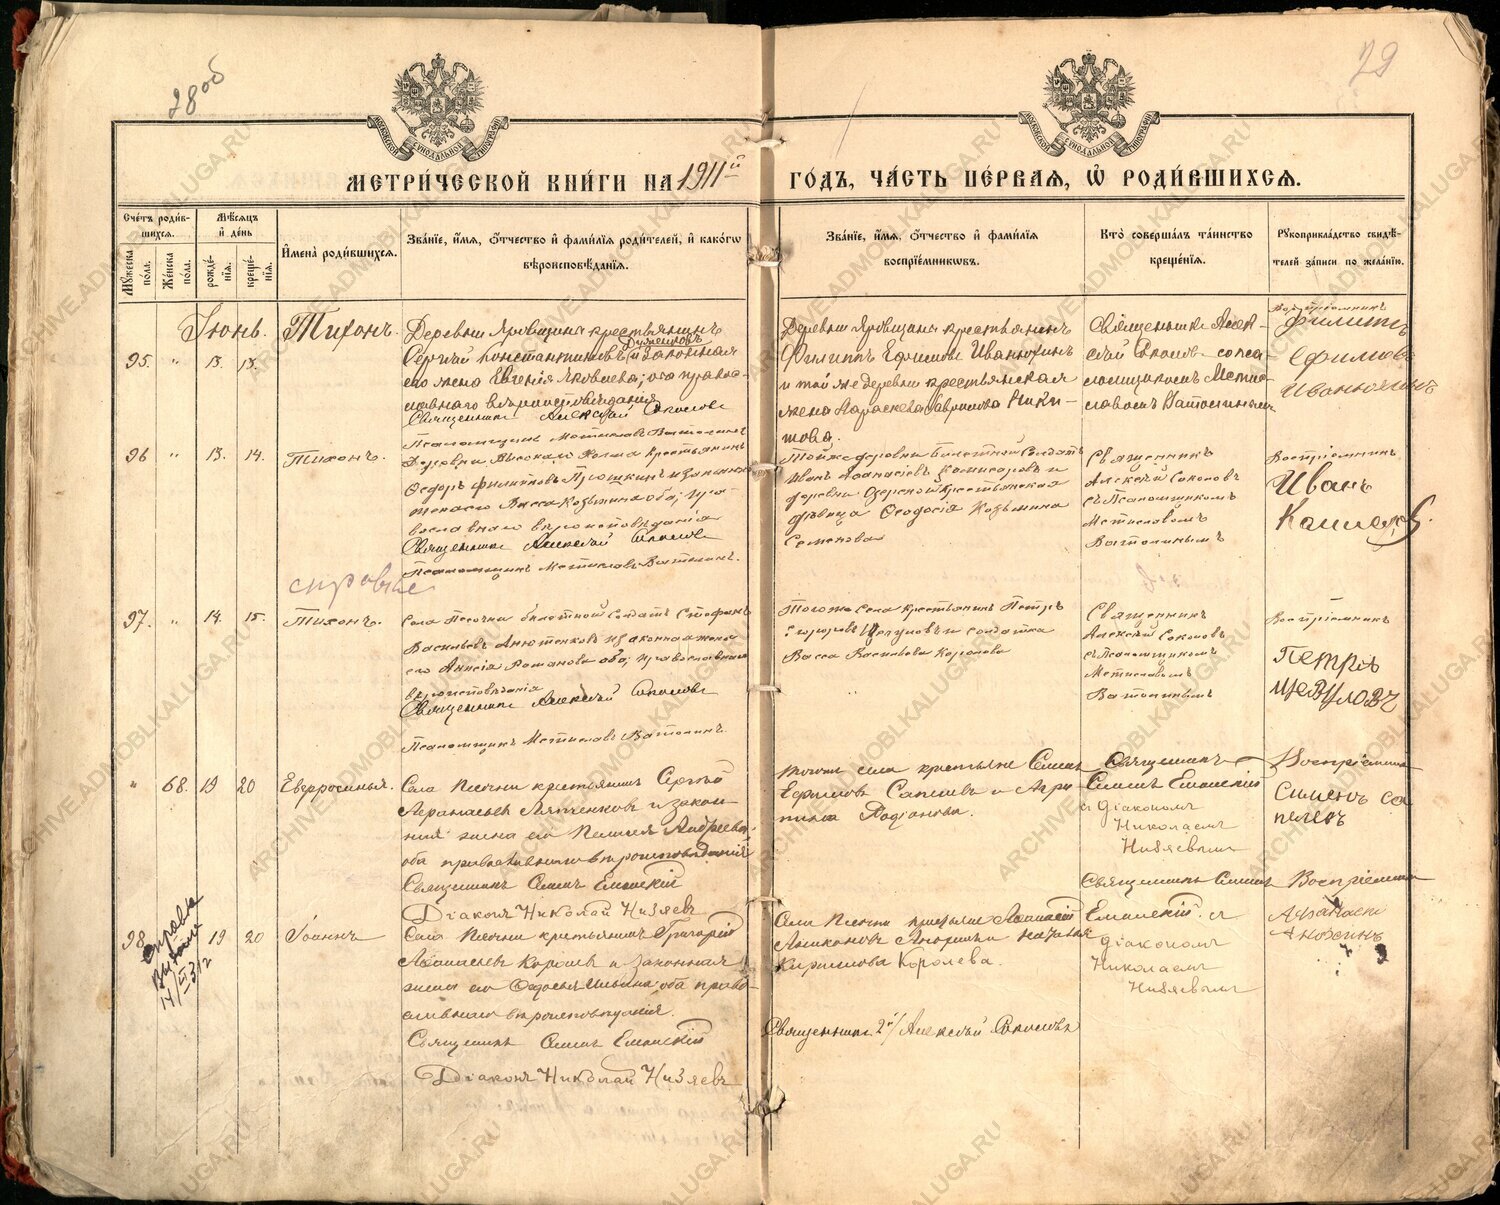 28 об
29
МЕТРИ́ЧЕСКОЙ КНИ́ГИ НА 1911й ГО́ДЪ, ЧА́СТЬ ПЕ́РВАЯ, Ѿ РОДИ́ВШИХСЯ.
МОСКОВСКОЙ СѴНОДАЛЬНОЙ ТИПОГРАФІИ
МОСКОВСКОЙ СѴНОДАЛЬНОЙ ТИПОГРАФІИ
Сче́тъ роди́в-
шихся.
Му́жеска пола.
Же́нска пола.
Мѣ́сяцъ
и҆ де́нь
рожде́-
нїя.
креще́-
нїя.
И҆мена̀ роди́вшихся.
Зва́нїе, и҆́мя, о҆́тчество и҆ фами́лїя роди́телей, и҆ како́гѡ
вѣроисповѣ́данїя.
Зва́нїе, и҆́мя, о҆́тчество и҆ фами́лїя
воспрїе́мникѡвъ.
Кто̀ соверша́лъ та́инство
креще́нїя.
Рꙋкоприкла́дство свидѣ́-
телей за́писи по жела́нїю.
Іюнь.
95. " 13. 13.
Тихонъ.
Деревни Яровщина крестьянинъ
Сергѣй Константиновъ и законная
его жена Евгенія Яковлева; оба правос-
лавнаго вѣроисповѣданія
Священникъ Алексѣй Соколовъ
Псаломщикъ Мстиславъ Ватолинъ
Деревни Яровщина крестьянин
Филиппъ Ефимовъ Иванюхин
и той же деревни крестьянская
жена Параскева Гаврилова Ники-
това.
Священникъ Алек-
сѣй Соколовъ с псa-
ломщикомъ Мсти-
славомъ Ватолиным
Воспріемникъ
Филиппъ
Ефимовъ
Иванюхинъ
96 " 13. 14.
Тихонъ.
Деревни крестьянинъ
Ѳедоръ Филипповъ и законная
жена его Васса Козьмина оба; пра-
вославнаго вѣроисповѣданія
Священникъ Алексѣй Соколовъ
Псаломщикъ Мстиславъ Ватолинъ.
Тойже деревни билетной солдатъ
Иванъ Аѳанасіевъ Комисаровъ и
деревни Озерской крестьянская
дѣвица Ѳеодосія Козьмина
Семенова
Священникъ
Алексѣй Соколовъ
съ Псаломщикомъ
Мстиславомъ
Ватолинымъ
Воспріемникъ
Иванъ
справка
97. " 14. 15.
Тихонъ.
Села Песочни билетной солдатъ Стефанъ
Васильевъ Анютенковъ и законная жена
его Анисія Романова оба; православнаго
вѣроисповѣданія
Священникъ Алексѣй Соколовъ
Псаломщикъ Мстиславъ Ватолинъ.
Тогоже села крестьянин Петръ
и солдатка
Васса Васильева Королева
Священникъ
Алексѣй Соколовъ
съ Псаломщикомъ
Мстиславымъ
Ватолинымъ
Воспріемникъ
Петръ
" 68. 19 20
Евфросинья.
Села Песочни крестьянинъ Сергѣй
Аѳанасьевъ Лятенковъ и закон-
ная жена его Пелагея Андреева,
оба православнаго вѣроисповѣданія
Священникъ Симеонъ Еленскій
Діаконъ Николай Низяевъ
тогоже села крестьяне Симеонъ
Ефимовъ Сапелевъ и Агри-
пина Родіонова.
Священникъ
Симеонъ Еленскій
съ діакономъ
Николаемъ
Низяевымъ
Воспріемникъ
Симеонъ Са
пелевъ
98.
справка
выдана
14/III 312
19 20
Іоаннъ
Села Песочни крестьянинъ Григорій
Аѳанасьевъ Королевъ и законная
жена его Ѳедосья Ильина оба право-
славнаго вѣроисповѣданія.
Священникъ Симеонъ Еленскій
Діаконъ Николай Низяевъ
Села Песочни крестьяне Аѳанасій
Аникановъ Аношинъ и Наталья
Кириллова Королева.
Священникъ Симеонъ
Еленскій съ
діакономъ
Николаемъ
Низяевымъ
Воспріемникъ
Афанасій
Аношинъ
Священникъ 2й/ Алексѣй Соколовъ
ARCHIVE.ADMOBLKALUGA.RU